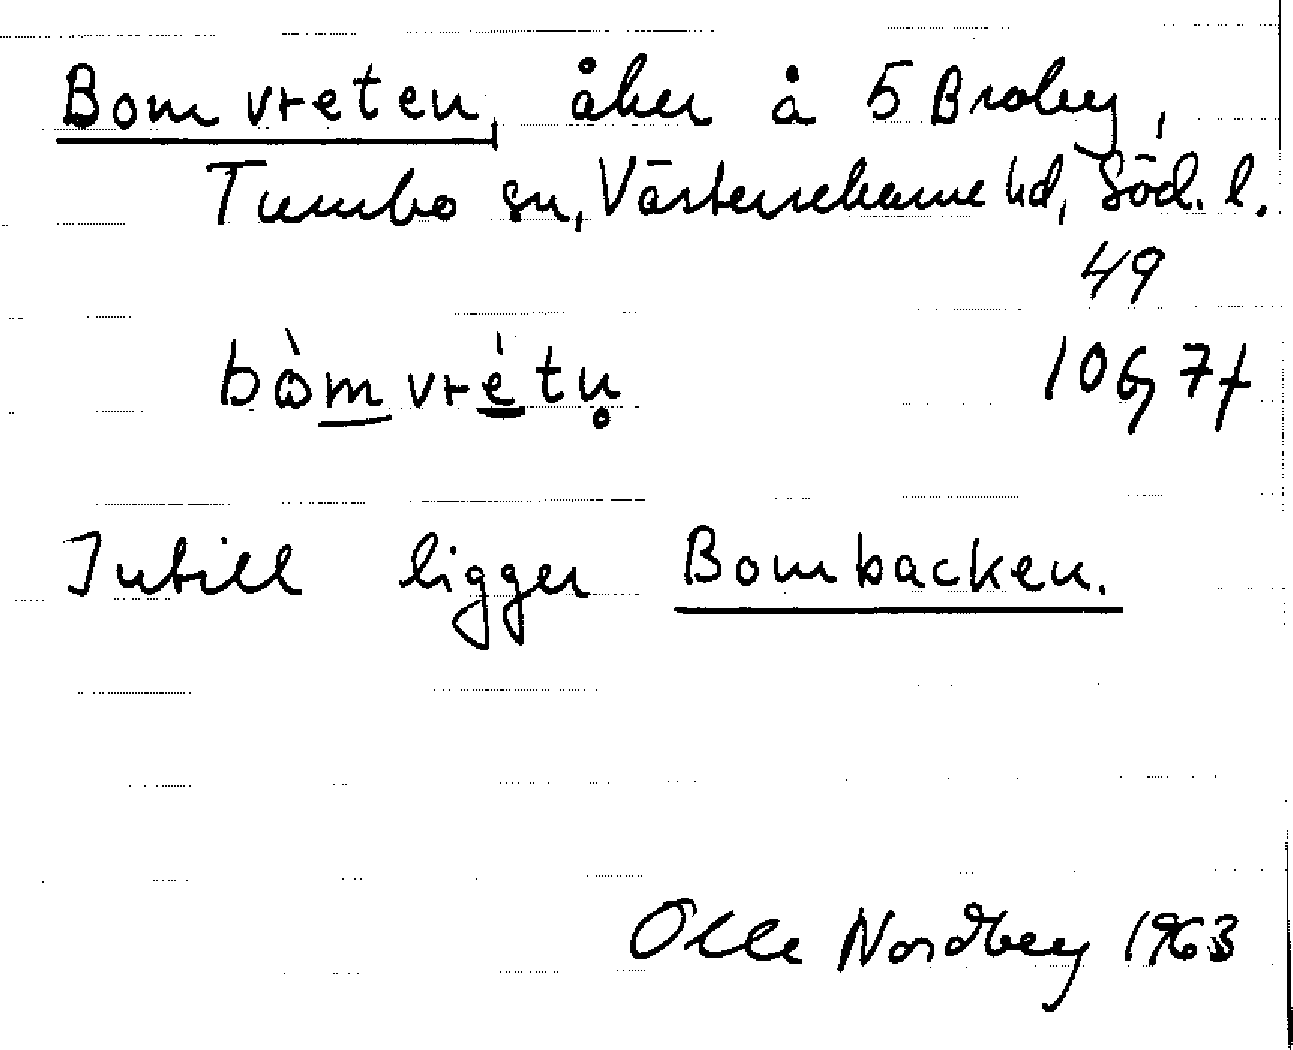 Bomvreten, åker å 5 Broby,
Tumbo sn, Västerrekarne hd, Söd. l.
49
bòmvrétn̥
Intill ligger Bombacken.
Olle Nordberg 1963